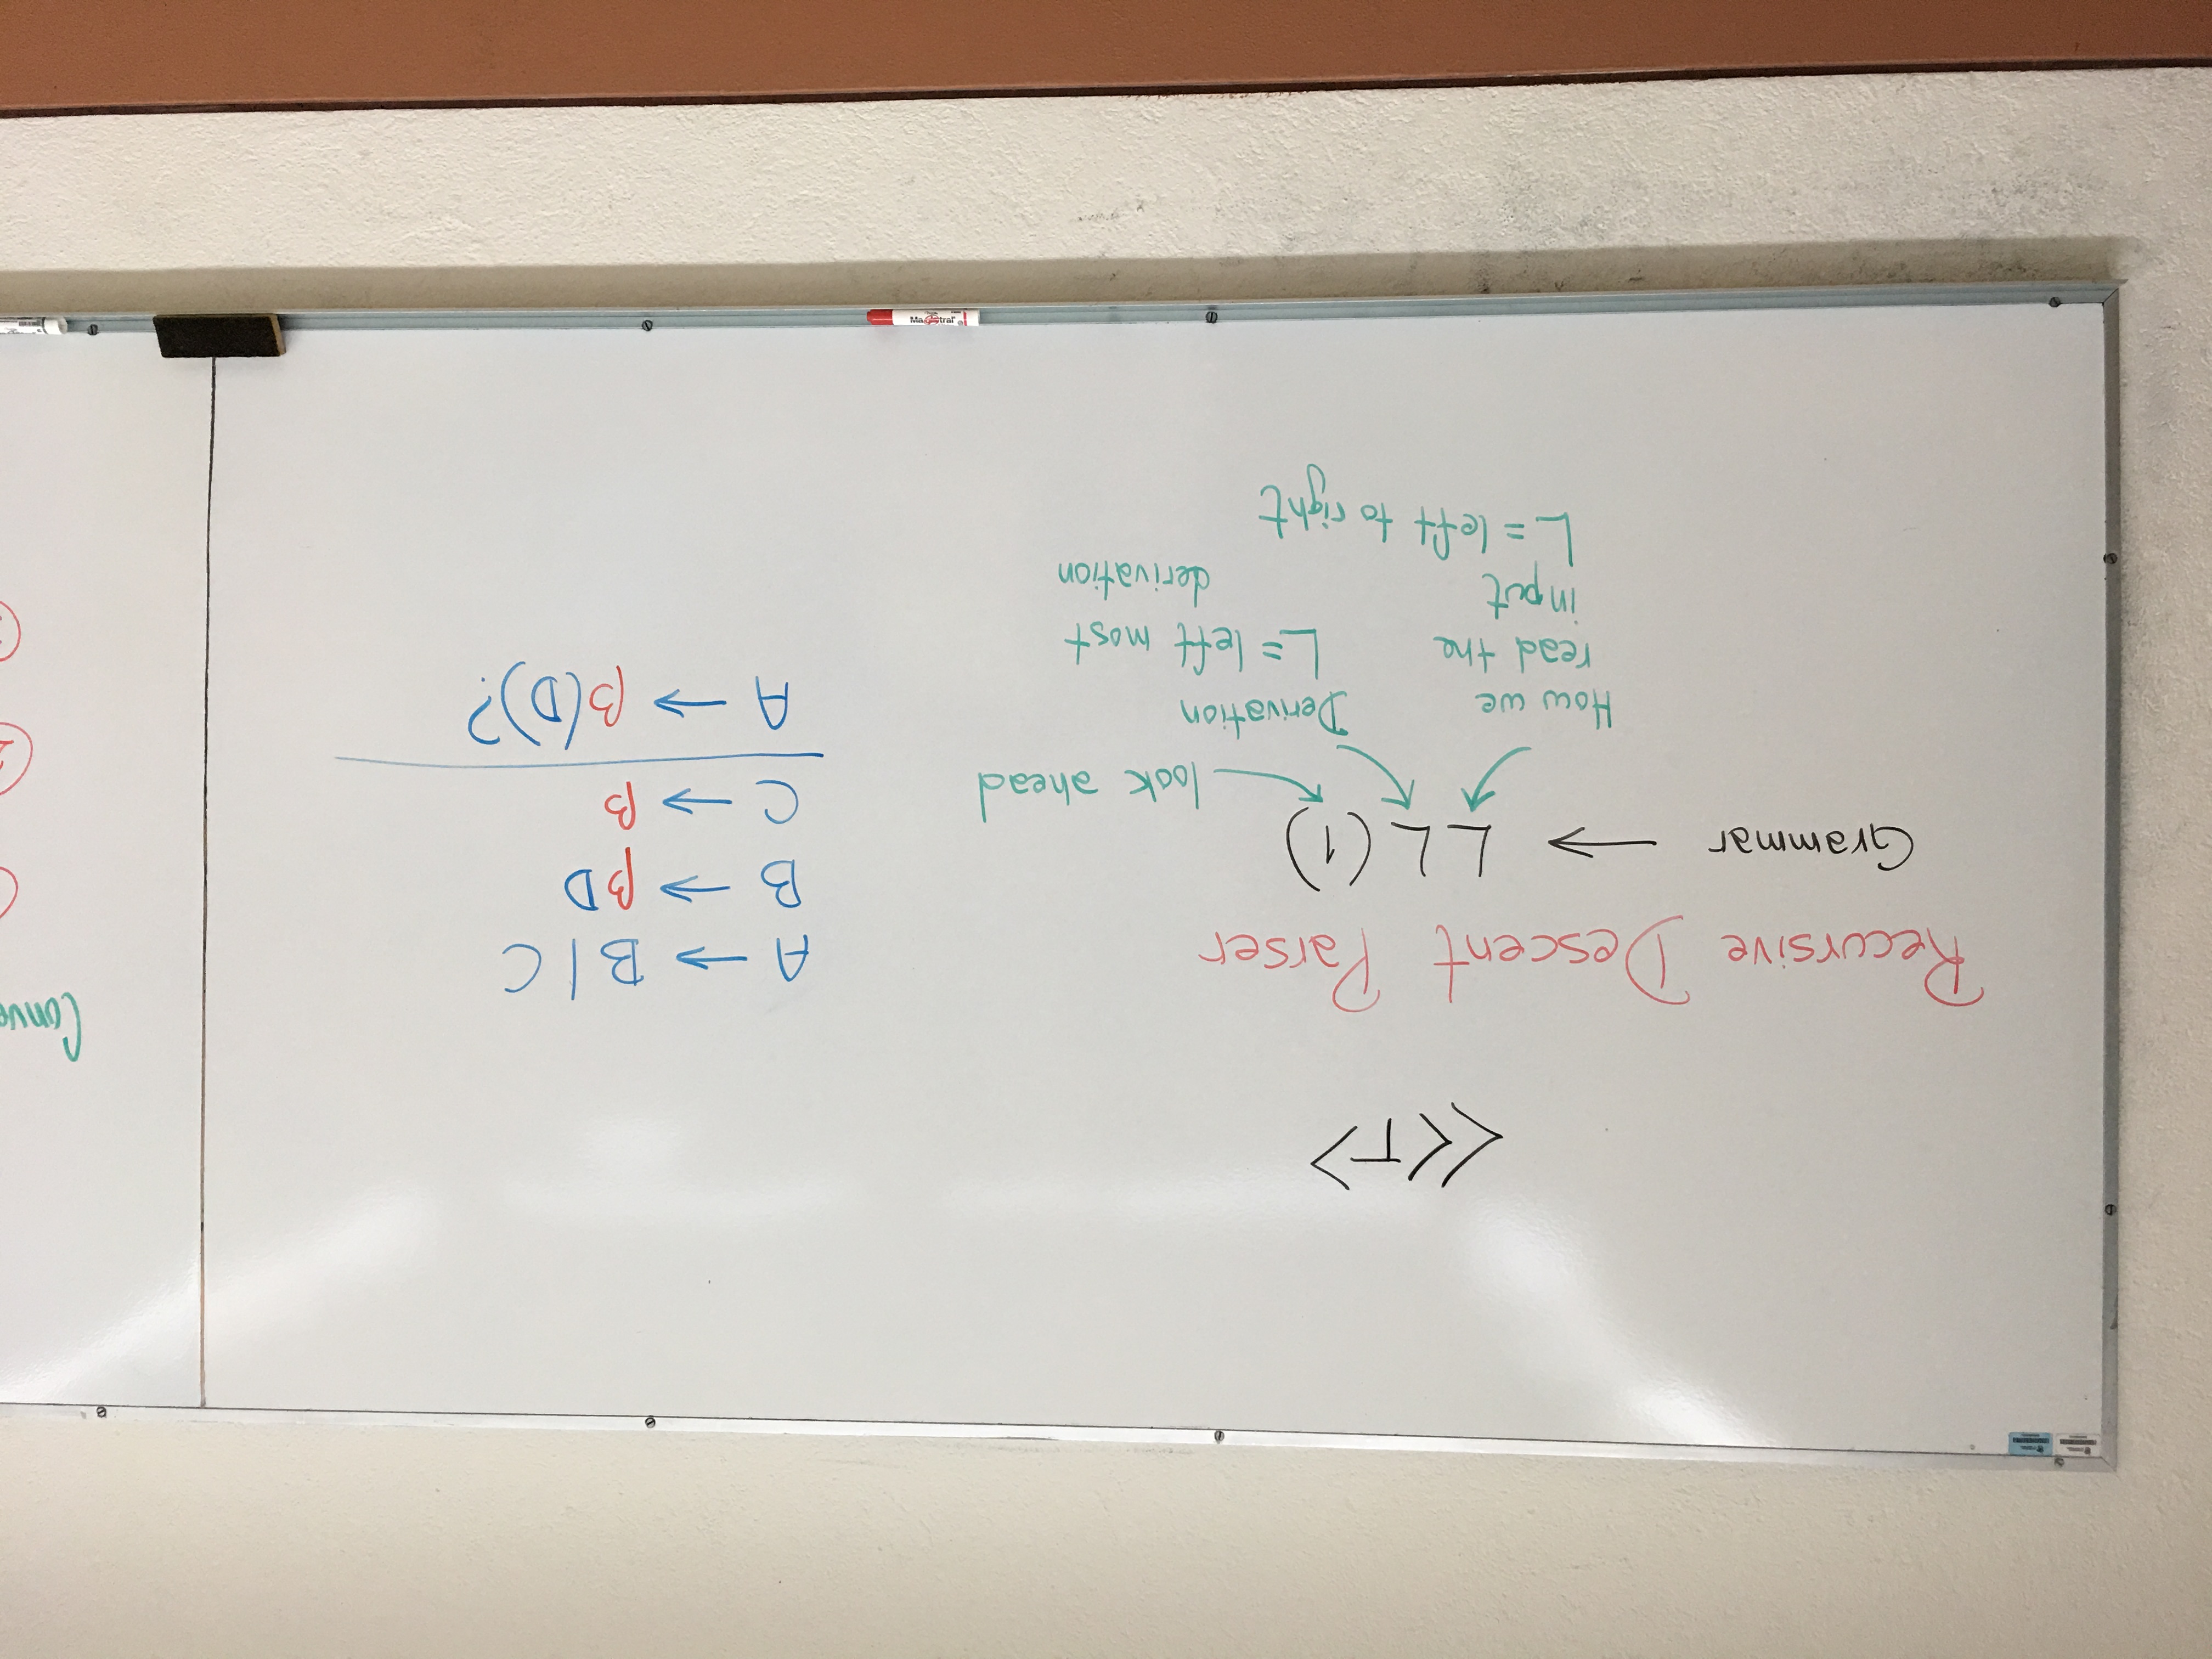 <<T>
Recursive Descent Parser
Grammar → LL(1)
look ahead
How we
read the
input
L = left to right
Derivation
L = left most
derivation
A → B | C
B → βD
C → β
A → β(D)?
Conve
2
Magistral